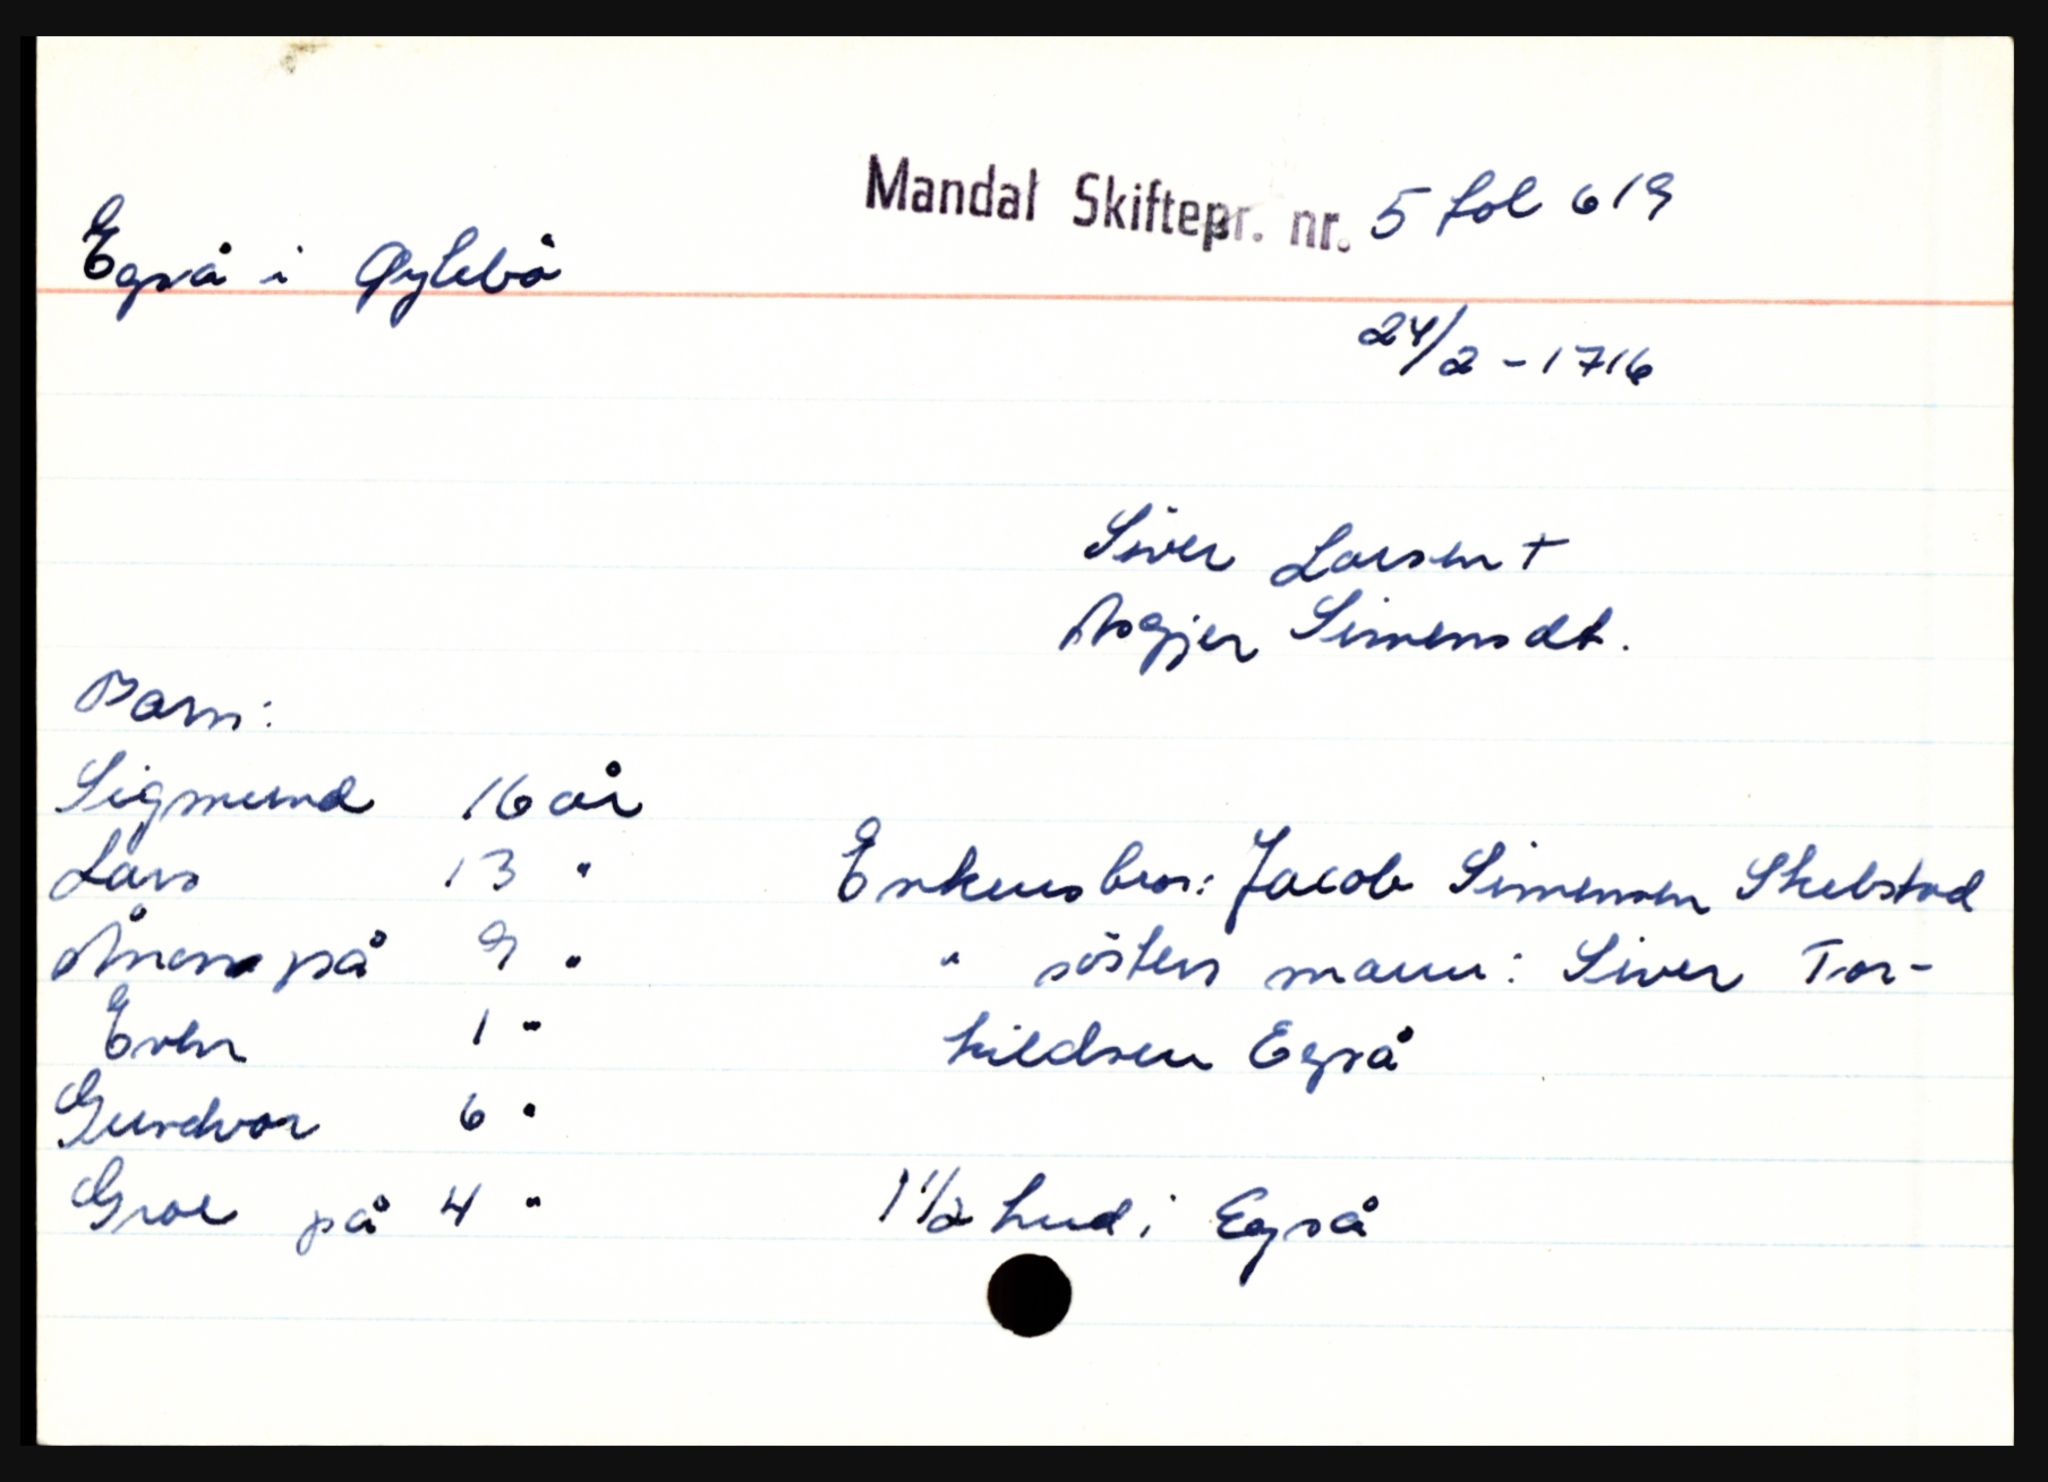 Mandal Skiftepr. nr. 5 fol 619
Egså i Øylebö
24/2 - 1716
Siver Larsen †
Asgjer Simensdt.
Barn:
Sigmund 16 år
Lars 13 "
Ånen på 9 "
1 "
Gundvor 6 "
Groe på 4 "
Enkens bror: Jacob Simensen Skebstad
" østers mann: Siver Tor-
kildsen Egså
1 1/2 hud i Egså